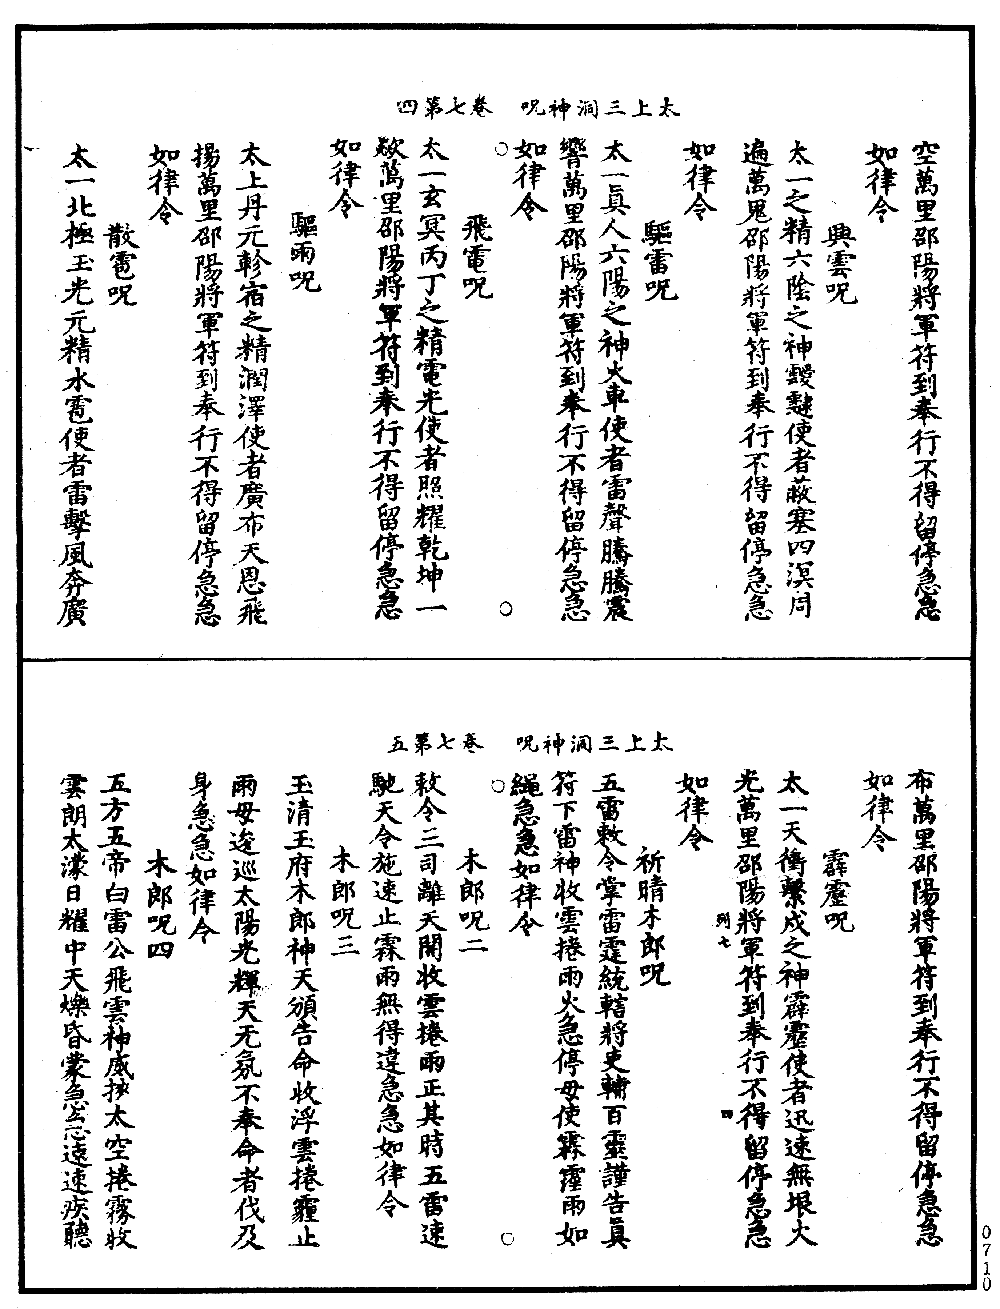 太上三洞神呪　卷七第四
空萬里邵陽將軍符到奉行不得留停急急
如律令
興雲呪
太一之精六陰之神靉靆使者蔽塞四溟周
遍萬鬼邵陽將軍符到奉行不得留停急急
如律令
驅雷呪
太一眞人六陽之神火車使者雷聲騰騰震
響萬里邵陽將軍符到奉行不得留停急急
如律令
飛電呪
太一玄冥丙丁之精電光使者照耀乾坤一
歘萬里邵陽將軍符到奉行不得留停急急
如律令
驅雨呪
太上丹元軫宿之精潤澤使者廣布天恩飛
揚萬里邵陽將軍符到奉行不得留停急急
如律令
散雹呪
太一北極玉光元精水雹使者雷擊風奔廣
太上三洞神呪　卷七第五
布萬里邵陽將軍符到奉行不得留停急急
如律令
霹靂呪
太一天衝繫成之神霹靂使者迅速無垠火
光萬里邵陽將軍符到奉行不得留停急急
列七　四
如律令
祈晴木郎呪
五雷敕令掌雷霆統轄將吏轄百靈謹告眞
符下雷神收雲捲雨火急停毋使霖霪雨如
繩急急如律令
木郎呪二
敕令三司離天開收雲捲雨正其時五雷速
馳天令施速止霖雨無得違急急如律令
木郎呪三
玉清王府木郎神天頒告命收浮雲捲霾止
雨毋逡巡太陽光輝天无氛不奉命者伐及
身急急如律令
木郎呪四
五方五帝白雷公飛雲神威掃太空捲霧收
雲朗太濛日耀中天爍昏蒙急急遠速疾聽
0710